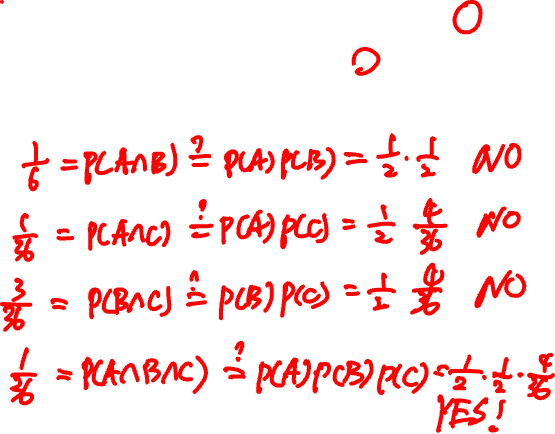 1/6 = P(A∩B) ≟ P(A)P(B) = 1/2 · 1/2 NO
1/36 = P(A∩C) ≟ P(A)P(C) = 1/2 4/36 NO
3/36 = P(B∩C) ≟ P(B)P(C) = 1/2 4/36 NO
1/36 = P(A∩B∩C) ≟ P(A)P(B)P(C) = 1/2 · 1/2 · 4/36
YES!